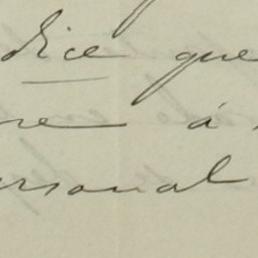 dice que
re á
ersonal